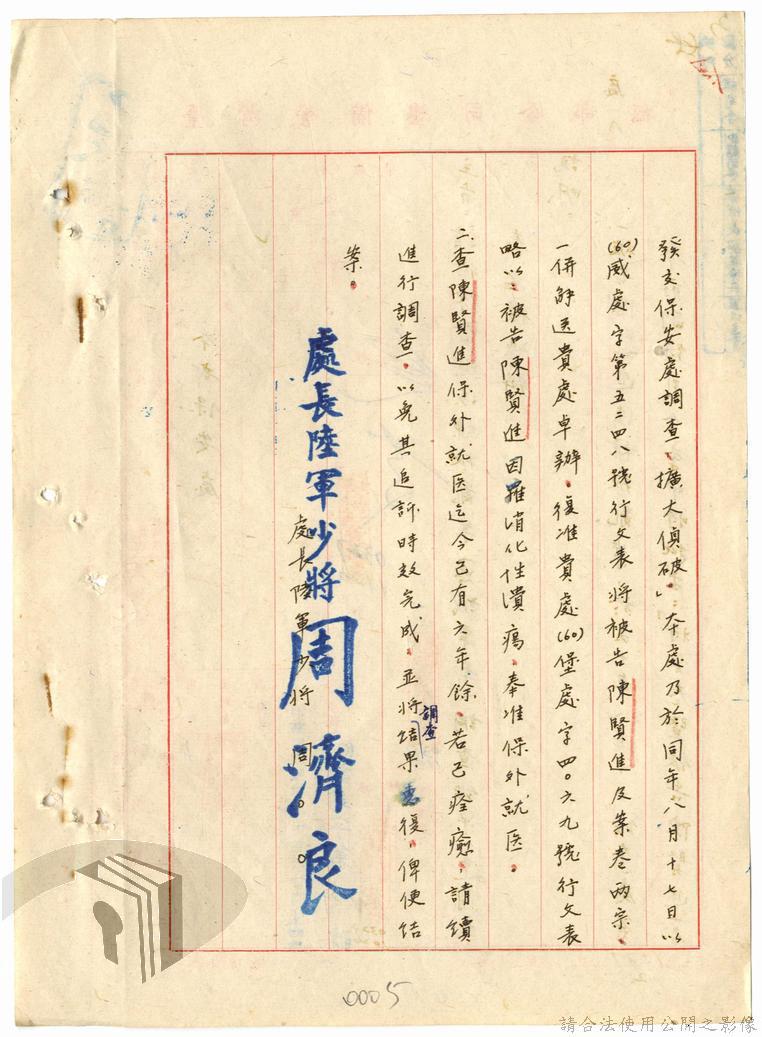 發交保安處調查，擴大偵破」本處乃於同年八月十七日以
(60)威處字第五二四八號行文表將被告陳賢進及案卷兩宗，
一併解送貴處卓辦。復准貴處(60)堡處字四○六九號行文表
略以：被告陳賢進因罹消化性潰瘍，奉准保外就医。
二、查陳賢進保外就医迄今已有六年餘，若已痊癒，請續
進行調查，以免其追訴時效完成，並將調查結果惠復，俾便結
案。
處長陸軍少將周濟良
處長陸軍少將 周○○
0005
請合法使用公開之影像